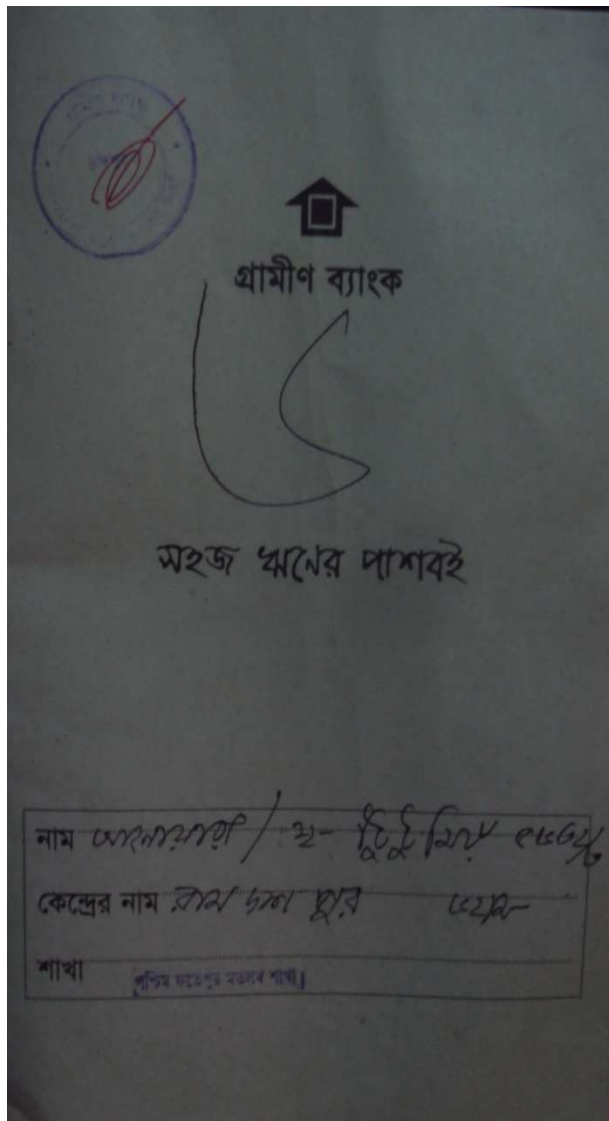 গ্রামীণ ব্যাংক
সহজ ঋনের পাশবই
নাম আনোয়ারা / স্ব- টুটু মিয়া
কেন্দ্রের নাম রাম দাশ পুর
শাখা পশ্চিম ফতেপুর মতলব শাখা।